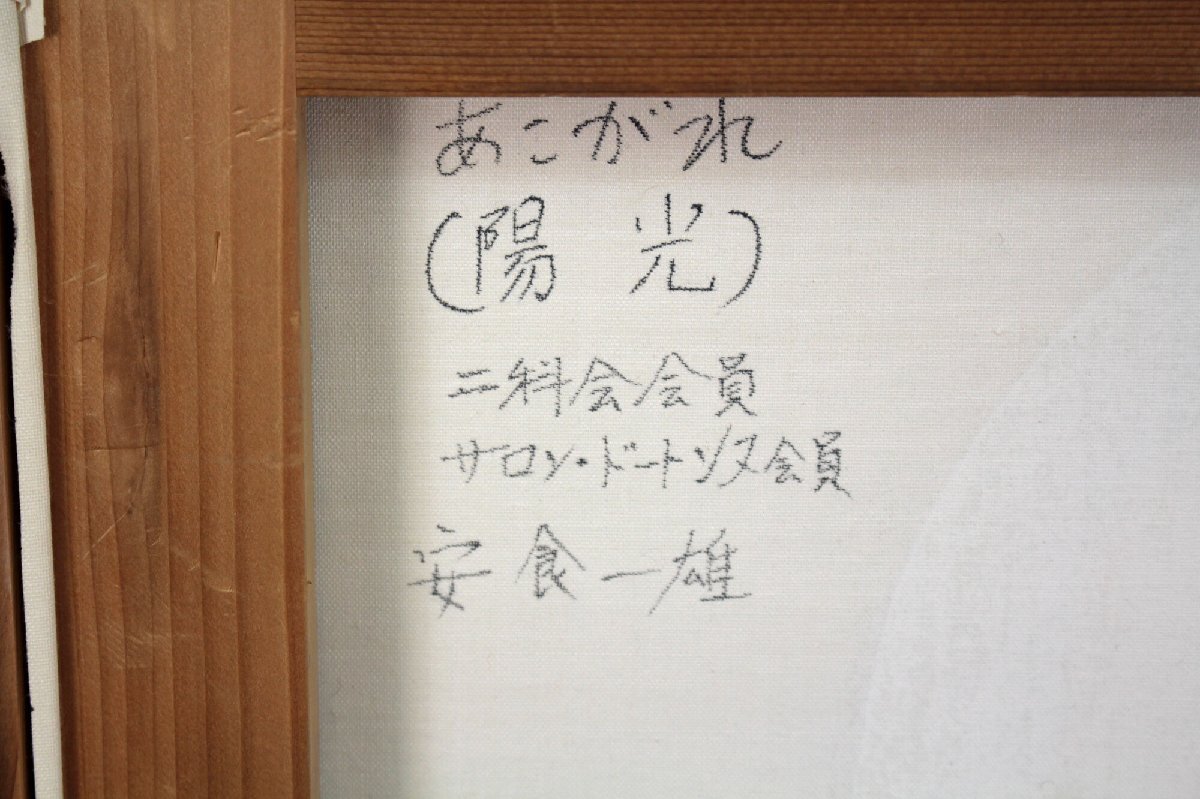 あこがれ
(陽光)
二科会会員
サロン・ドートンヌ会員
安食一雄